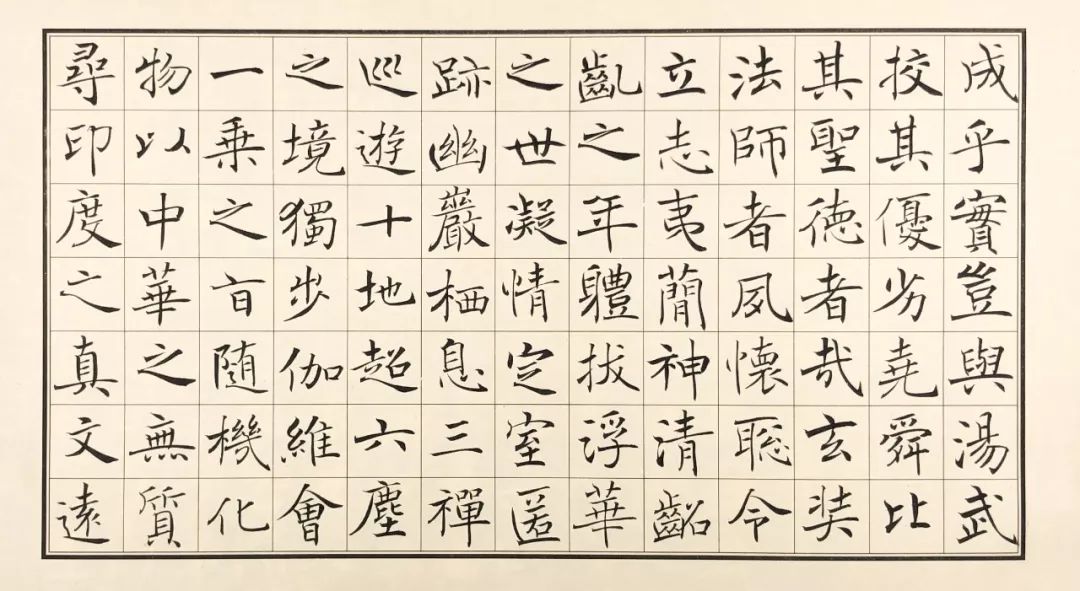 成乎實豈與湯武
挍其優劣堯舜比
其聖德者哉玄奘
法師者夙懷聡令
立志夷蕳神清齠
齓之年軆拔浮華
之世凝情定室匿
跡幽巖栖息三禪
巡遊十地超六塵
之境獨步伽維會
一乗之旨随機化
物以中華之無質
尋印度之真文遠